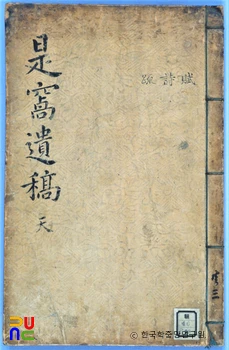 賦詩疏
是窩遺稿
天
三
© 한국학중앙연구원